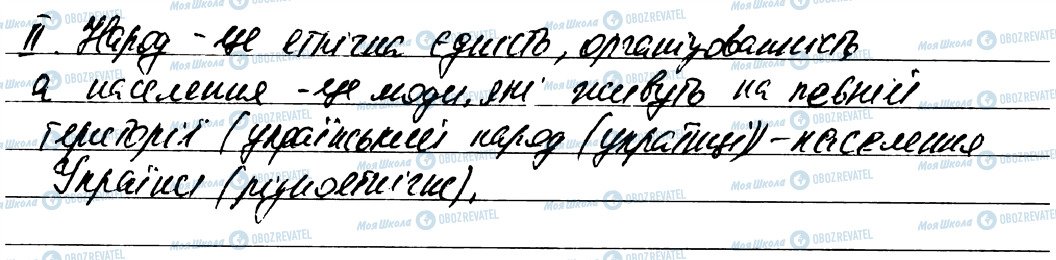 II. Народ - це етнічна єдність, організованність
а населення - це люди, які живуть на певній
території (український народ (українці)) - населення
України (різноетнічне).